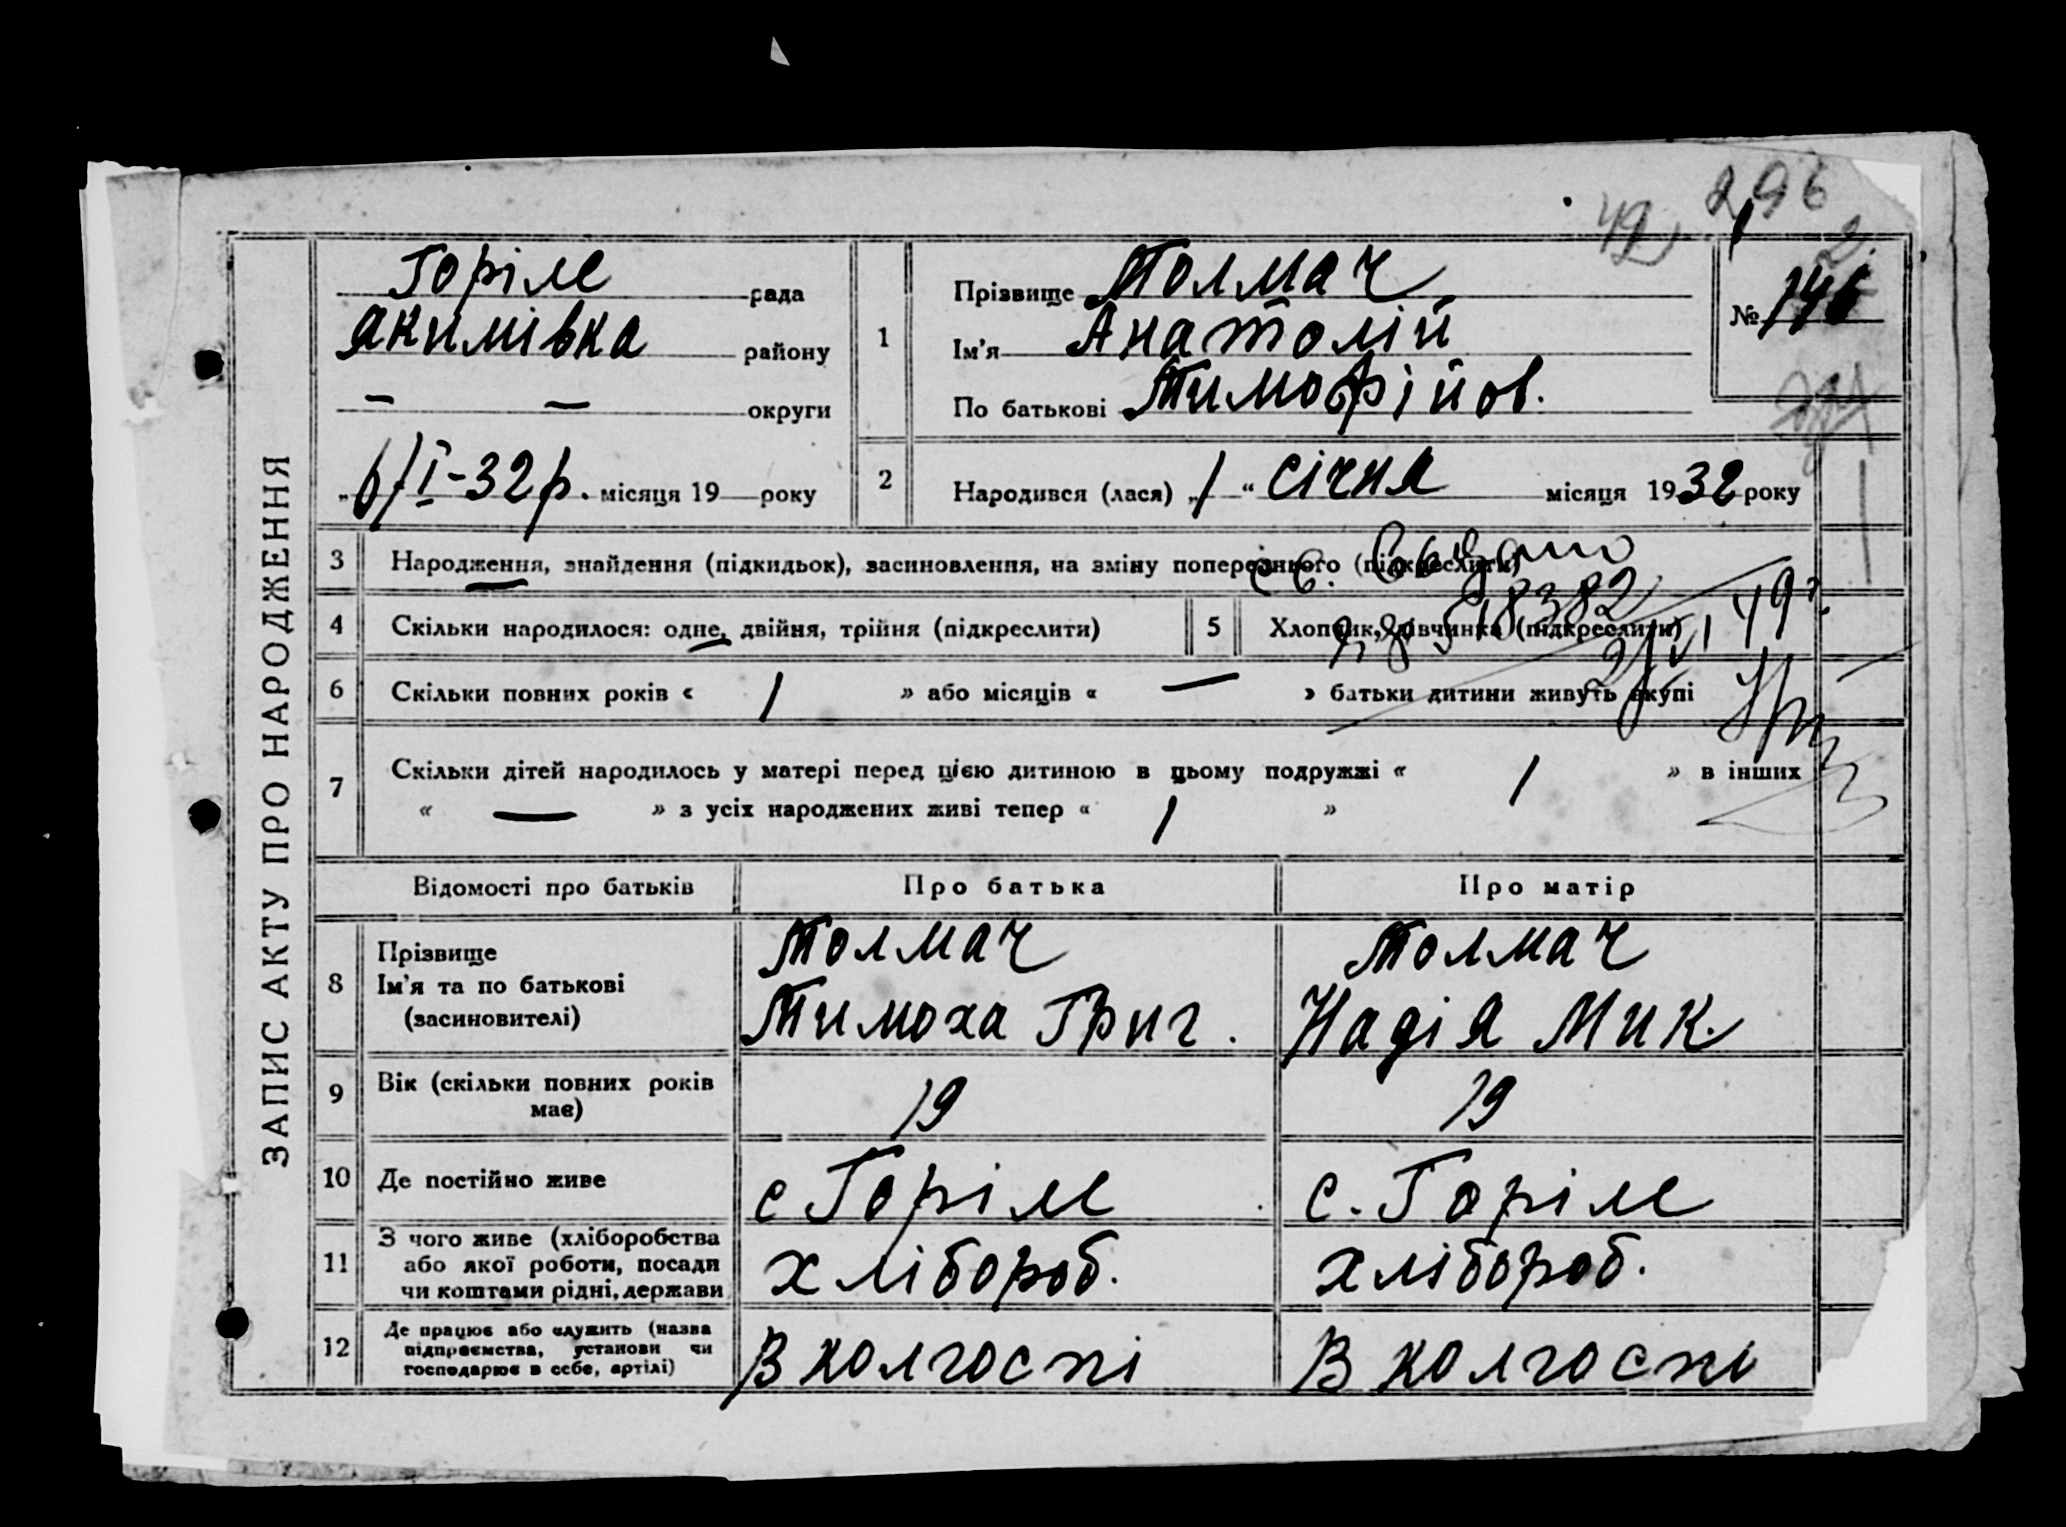 ЗАПИС АКТУ ПРО НАРОДЖЕННЯ
296
Горіле рада
Якимівка району
— — округи
6/I-32р. місяця 19 року
1
Прізвище Толмач
Ім'я Анатолій
По батькові Тимофійов.
№ 146
2 Народився (лася) „1“ січня місяця 1932 року
3 Народження, знайдення (підкидьок), засиновлення, на зміну попереднього (підкреслити)
4 Скільки народилося: одне, двійня, трійня (підкреслити) 5 Хлопчик, дівчинка (підкреслити)
св. видано
518382
2/VI 49г.
6 Скільки повних років « 1 » або місяців « — » батьки дитини живуть вкупі
7 Скільки дітей народилось у матері перед цією дитиною в цьому подружжі « 1 » в інших
« — » з усіх народжених живі тепер « 1 »
Відомості про батьків Про батька Про матір
8 Прізвище Толмач Толмач
Ім'я та по батькові Тимоха Григ. Надія Мик.
(засиновителі)
9 Вік (скільки повних років має) 19 19
10 Де постійно живе с Горіле с. Горіле
11 З чого живе (хліборобства або якої роботи, посади чи коштами рідні, держави хлібороб. хлібороб.
12 Де працює або служить (назва підприємства, установи чи господарює в себе, артілі) В колгоспі В колгоспі